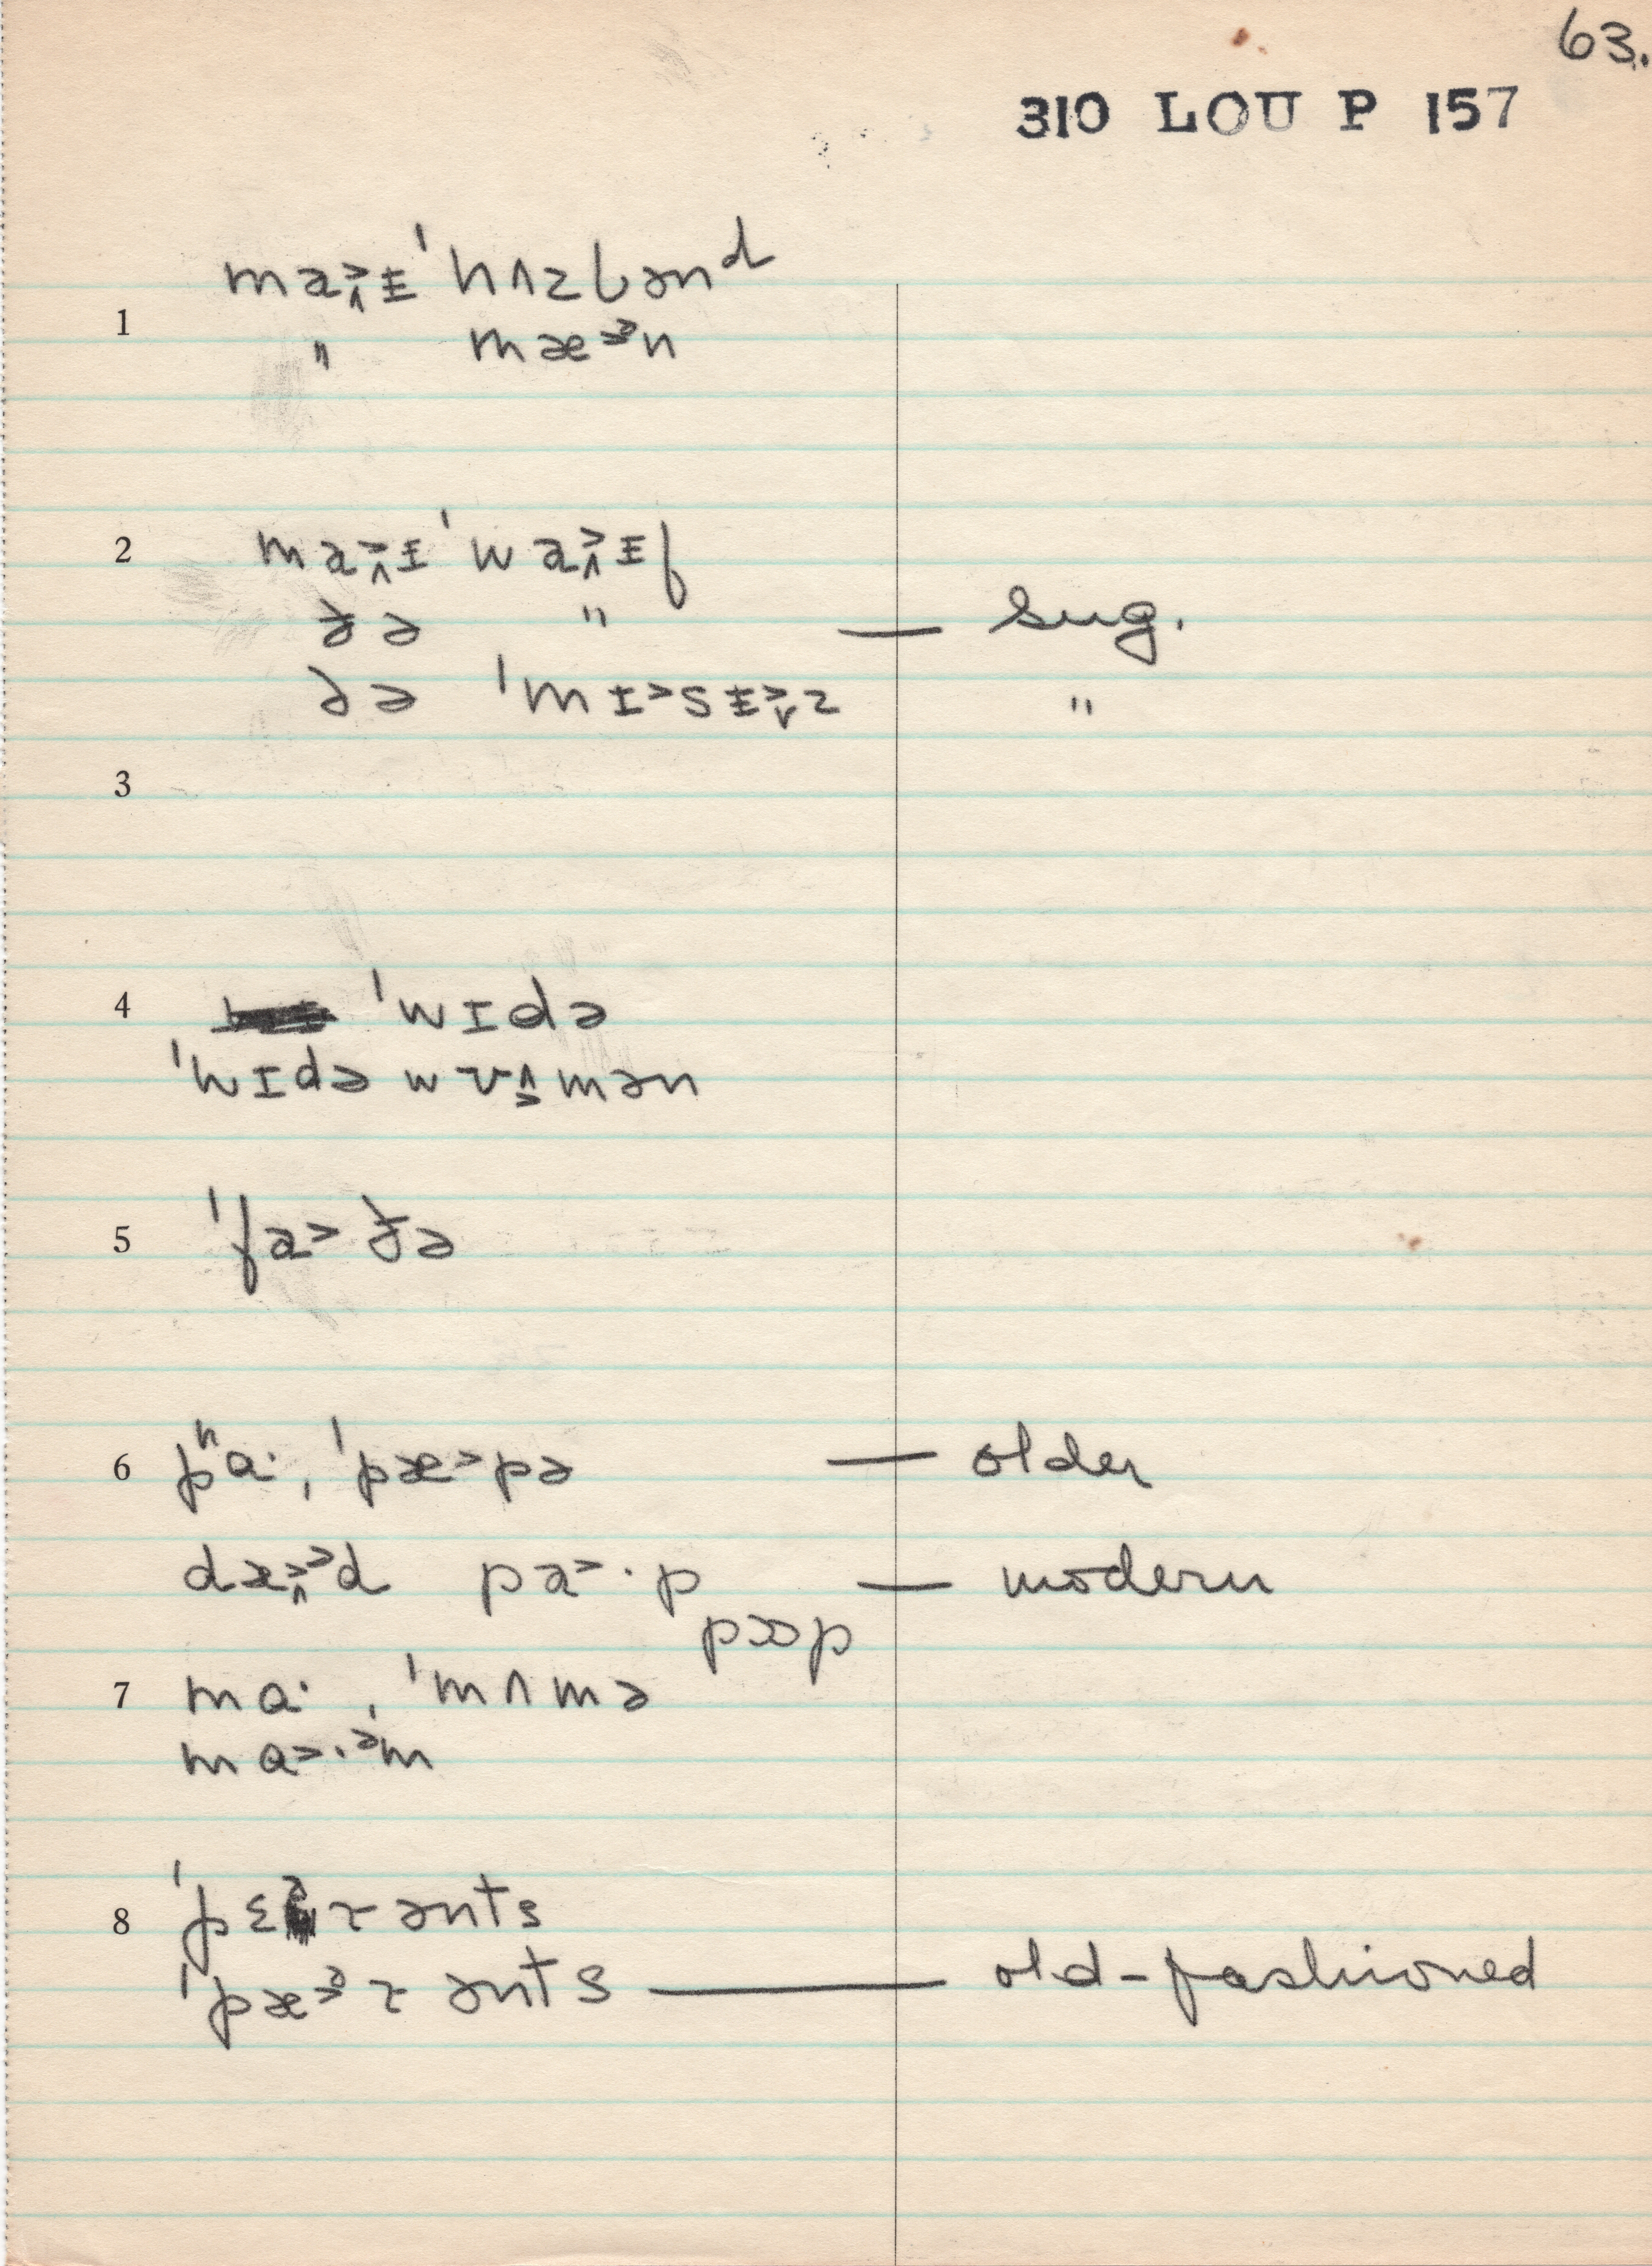 63.
310 LOU P 157
1 ma˃˄ɨ ˈhʌzbənᵈ
" mæ˃ᵊn
2 ma˃˄ɨ ˈwa˃˄ɨf
ðə " — sug.
ðə ˈmɪ˃sɨ˃˅z "
3
4 ˈwɪdə
ˈwɪdə wʊ˄˃mən
5 ˈfa˃ðə
6 pʰɑ·, ˈpæ˃pə — older
dæ˃˄ᵊd pa˃·p — modern
pɔp
7 mɑ·, ˈmʌmə
mɑ˃·ᵊm
8 ˈpɛᵊrənts
ˈpæ˃ᵊrənts — old-fashioned